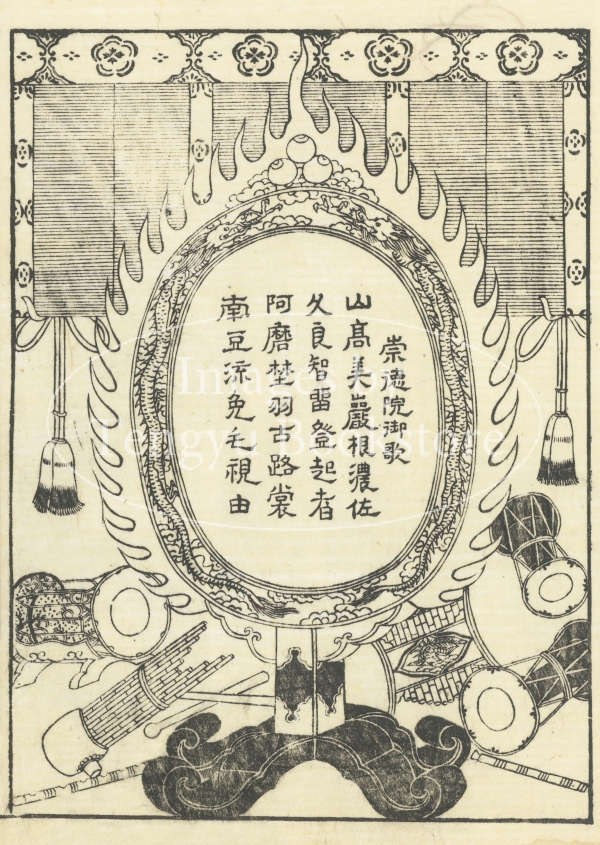 崇徳院御歌
山高美巖根濃佐
久良智畱登起者
阿磨埜羽古路裳
南豆流免毛視由
Images by
Tengyu Bookstore